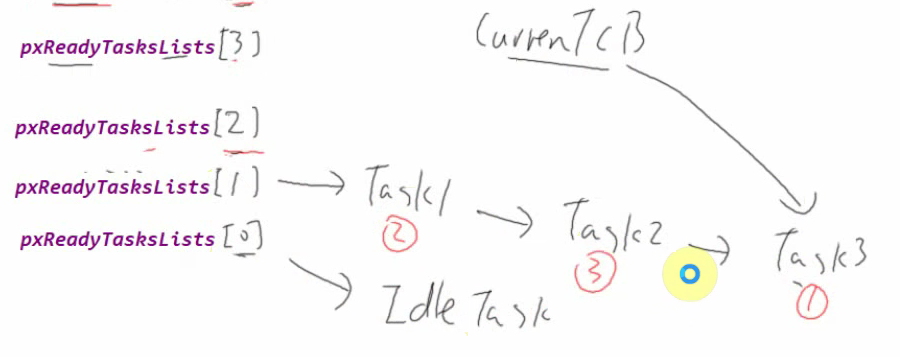 CurrenTCB
pxReadyTasksLists[3]
pxReadyTasksLists[2]
pxReadyTasksLists[1]
Task1
②
Task2
③
Task3
①
pxReadyTasksLists[0]
Idle Task